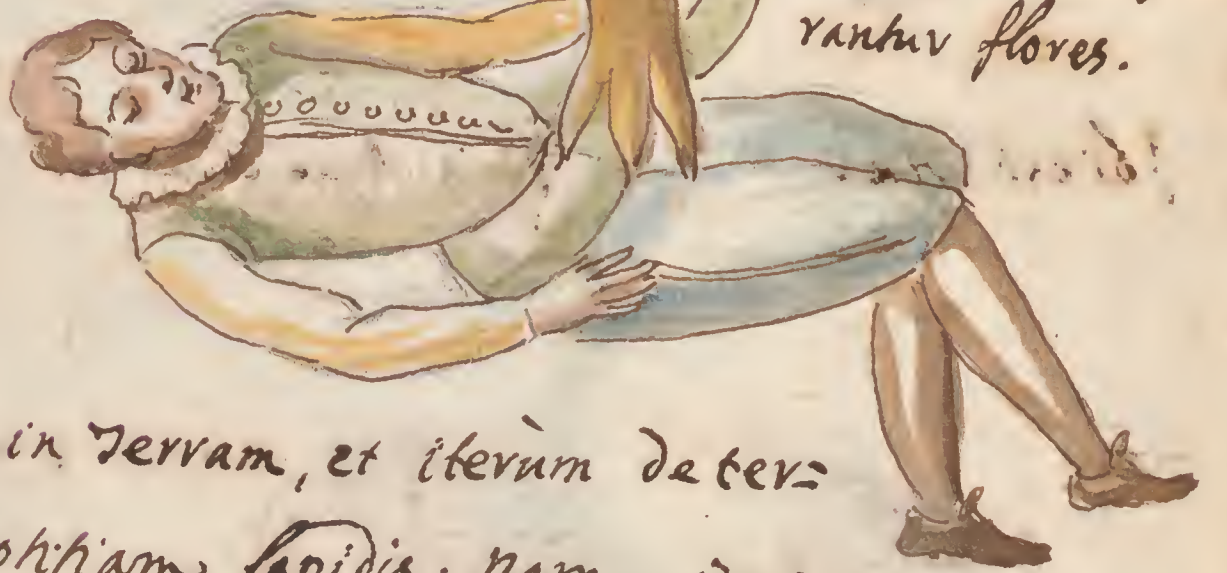 rantur flores.
in Terram, et iterùm de ter=
lapidis. nam